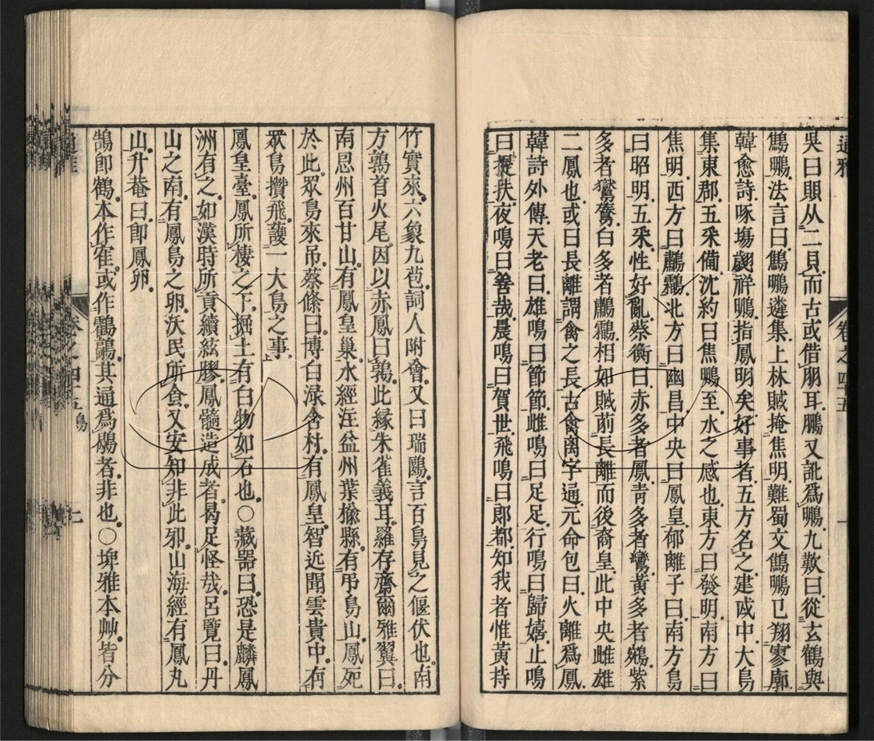 通雅
卷之四十五
吳曰䫨从二貝而古或借朋耳鵬又訛爲鵾九歎曰從玄鶴與
鷦鵬法言曰鷦鵬遴集上林賦掩焦明難蜀文鷦鵬已翔寥廓
韓愈詩啄場翽祥鵬指鳳明矣好事者五方名之建武中大鳥
集東郡五采備沈約曰焦鵬至水之感也東方曰發明南方曰
焦明西方曰鷫鸘北方曰幽昌中央曰鳳皇郁離子曰南方鳥
曰昭明五采性好亂蔡衡曰赤多者鳳靑多者鸞黃多者鵷紫
多者鸑鷟白多者鷫鸘相如賦前長離而後裔皇此中央雌雄
二鳳也或曰長離謂禽之長古禽离字通元命包曰火離爲鳳
韓詩外傳天老曰雄鳴曰節節雌鳴曰足足行鳴曰歸嬉止鳴
曰提扶夜鳴曰善哉晨鳴曰賀世飛鳴曰郎都知我者惟黃持
竹實來六象九苞詞人附會又曰瑞鷗言百鳥見之偃伏也南
方鶉首火尾因以赤鳳曰鶉此緣朱雀義耳羅存齋爾雅翼曰
南恩州百甘山有鳳皇巢水經注益州葉楡縣有弔鳥山鳳死
於此眾鳥來吊蔡絛曰博白淥含村有鳳皇智近聞雲貴中有
眾鳥攢飛護一大鳥之事
鳳皇臺鳳所棲之下掘土有白物如石也〇藏器曰恐是麟鳳
洲有之如漢時所貢續絃膠鳳髓造成者曷足怪哉呂覽曰丹
山之南有鳳鳥之卵沃民所食又安知非此夘山海經有鳳丸
山升菴曰卽鳳卵
鵠卽鶴本作隺或作鸖鶮其通爲鵒者非也〇埤雅本艸皆分
通雅
卷之四十五 鳥
七